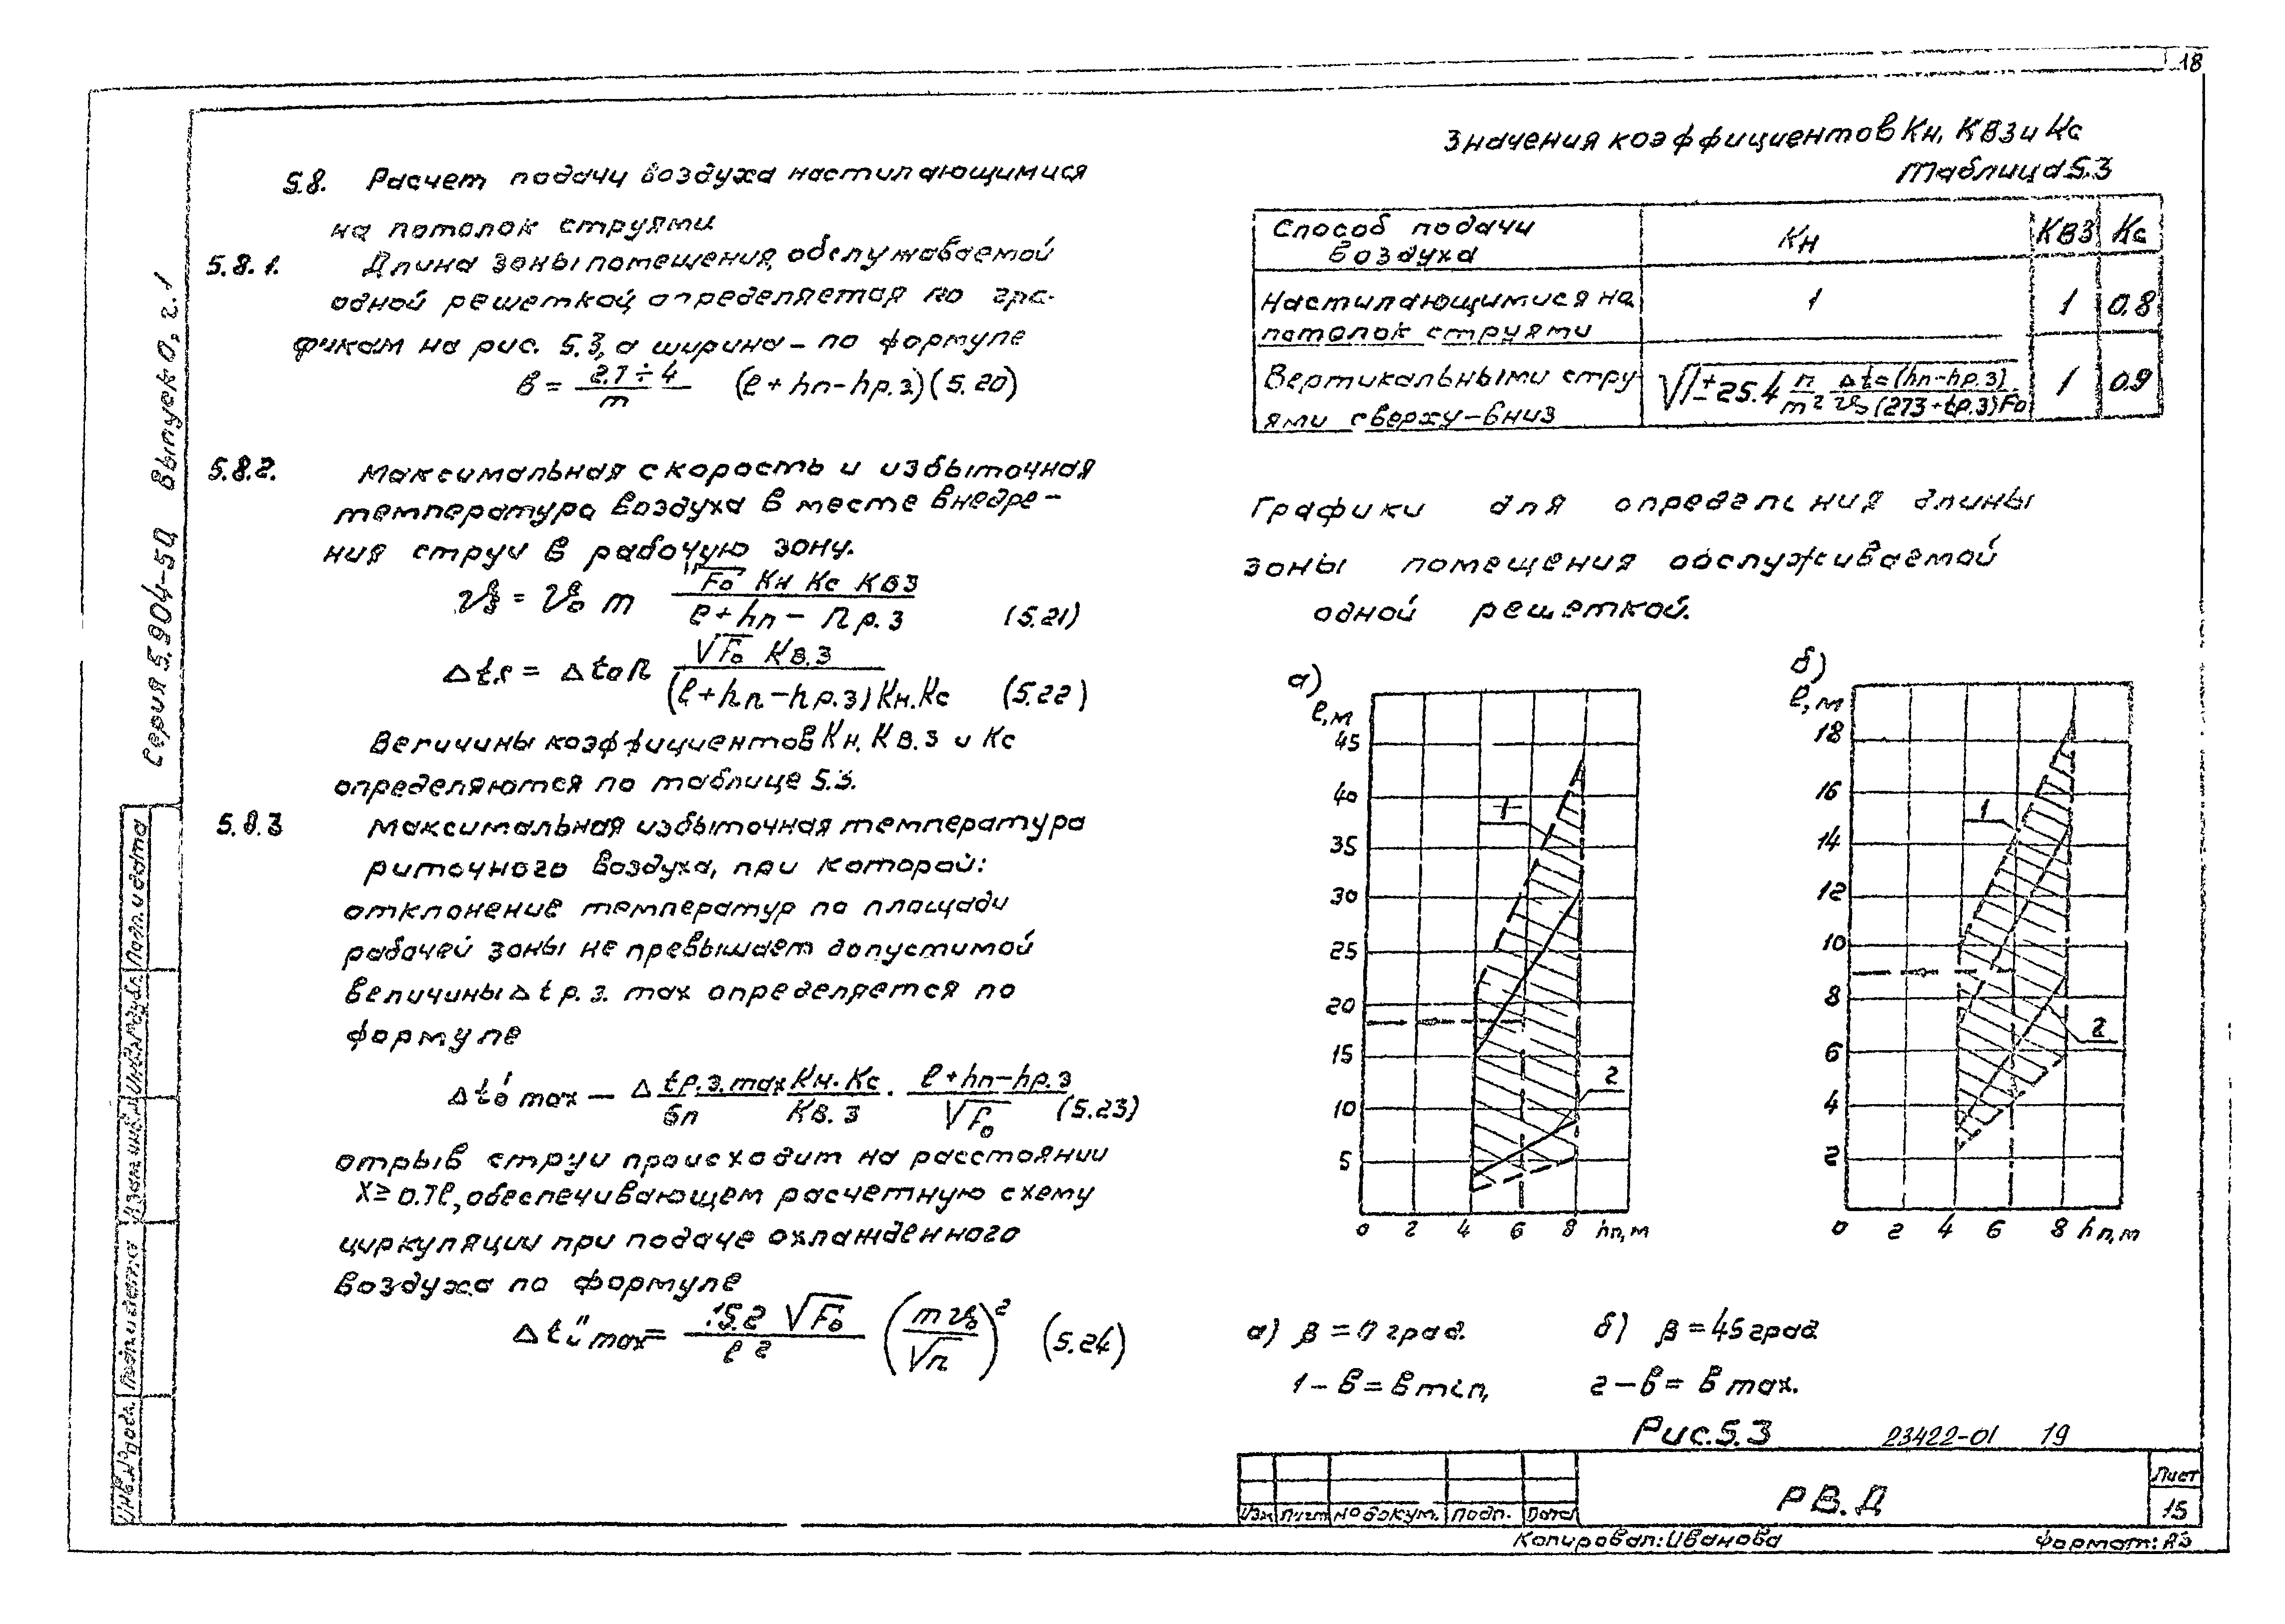 18
Серия 5.904-50 Выпуск 0, ч.1
5.8. Расчет подачи воздуха настилающимися
на потолок струями
5.8.1. Длина зоны помещения, обслуживаемой
одной решеткой, определяется по гра-
фикам на рис. 5.3, а ширина – по формуле
в = 2.7÷4 / m (ℓ + hп – hр.з) (5.20)
5.8.2. Максимальная скорость и избыточная
температура воздуха в месте внедре-
ния струи в рабочую зону.
= m √F₀ Кн Кс КВЗ / ℓ + hп – hр.з (5.21)
= Δt₀ n √F₀ Кв.з / (ℓ + hп – hр.з) Кн.Кс (5.22)
Величины коэффициентов Кн, Кв.з и Кс
определяются по таблице 5.3.
5.8.3 Максимальная избыточная температура
риточного воздуха, при которой:
отклонение температур по площади
рабочей зоны не превышает допустимой
величины Δtр.з. max определяется по
формуле
Δt₀' max – Δtр.з.max / 6n Кн.Кс / Кв.з · ℓ + hп – hр.з / √F₀ (5.23)
отрыв струи происходит на расстоянии
X ≥ 0.7ℓ, обеспечивающем расчетную схему
циркуляции при подаче охлажденного
воздуха по формуле
max = 15.2 √F₀ / ℓ² (m v₀ / √n)² (5.24)
Значения коэффициентов Кн, КВЗ и Кс
Таблица 5.3
Способ подачи воздуха Кн КВЗ Кс
Настилающимися на 1 1 0.8
потолок струями
Вертикальными стру- √1±25.4 n/m² Δt₀(hп–hр.з)/v₀(273+tр.з)F₀ 1 0.9
ями сверху–вниз
Графики для определения длины
зоны помещения обслуживаемой
одной решеткой.
а)
ℓ,м
45
40
35
30
25
20
15
10
5
0 2 4 6 8 hп, м
1
2
б)
ℓ, м
18
16
14
12
10
8
6
4
2
0 2 4 6 8 hп, м
1
2
а) β = 0 град. б) β = 45 град
1 – в = в min, 2 – в = в max.
Рис. 5.3 23422-01 19
Изм Лист № докум. Подп. Дата
РВ.Д
Лист
15
Копировал: Иванова Формат: А3
Инв.№ подл. Подпись и дата Взам. инв.№ Инв.№ дубл. Подп. и дата